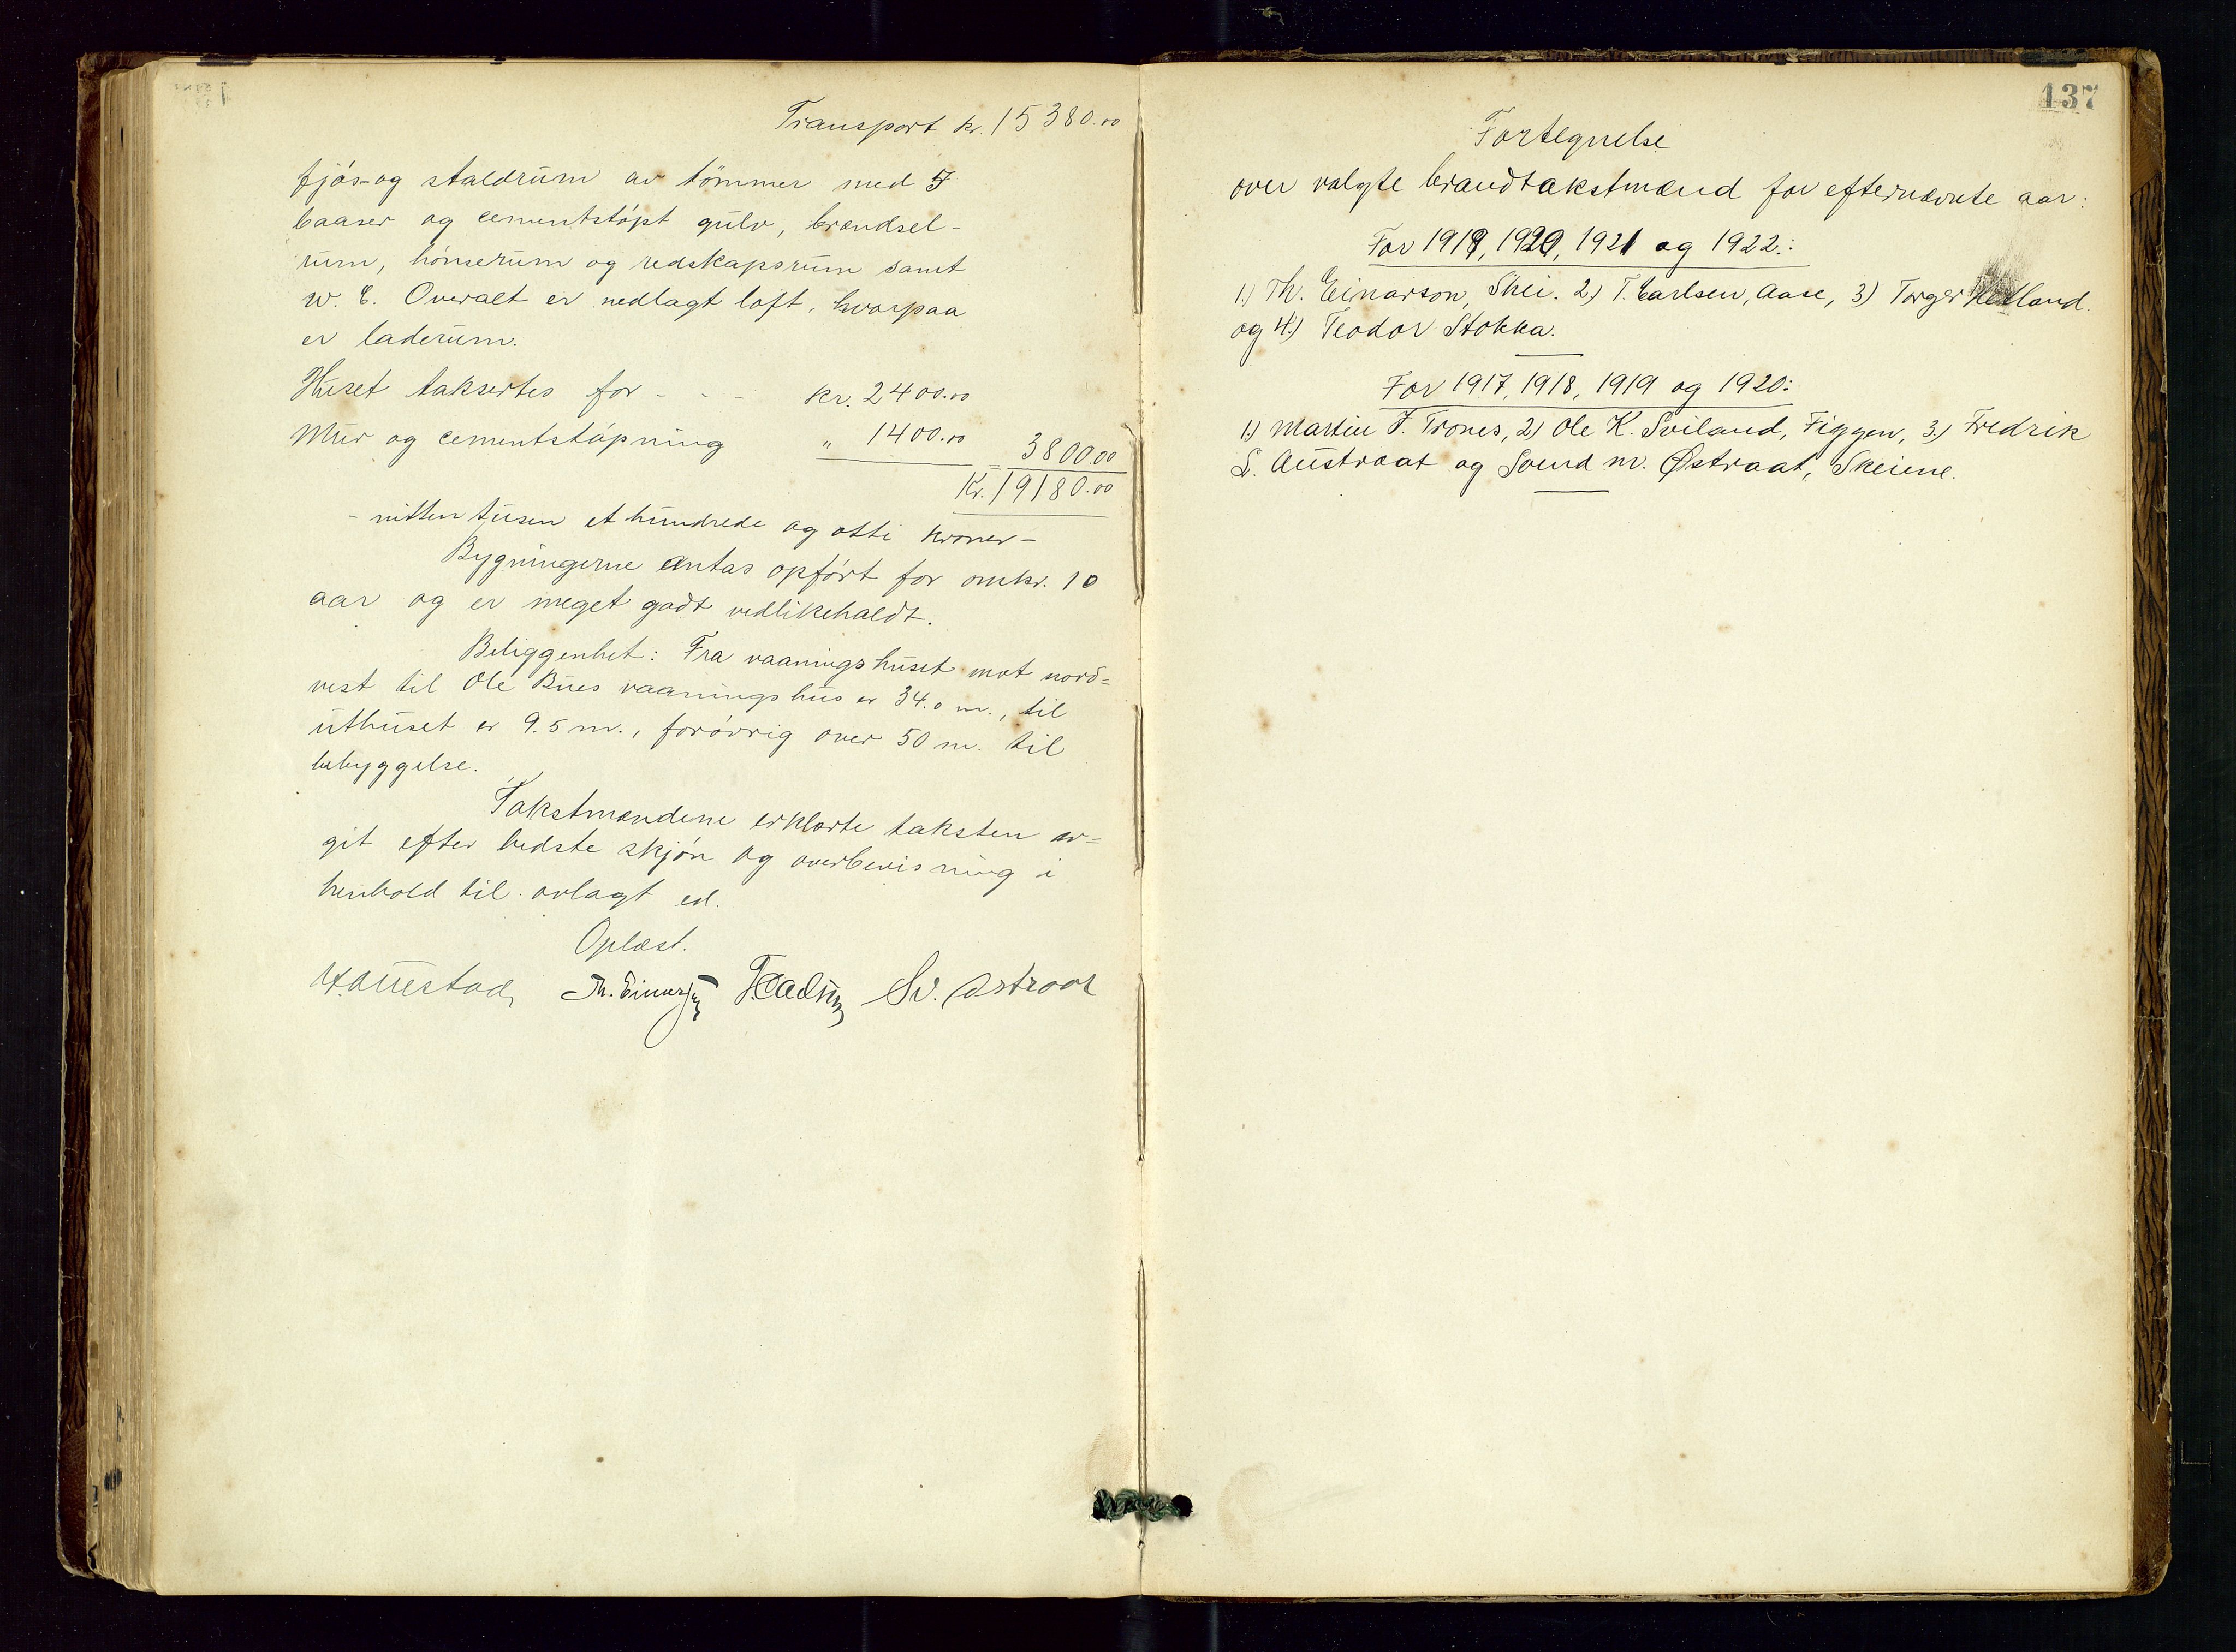 Transport kr. 15380.00
fjøs- og staldrum av tømmer med 5
baaser og cementstøpt gulv, brændsel-
rum, hønserum og redskapsrum samt
W. C. Overalt er nedlagt loft, hvorpaa
er laderum.
Huset taksertes for - - - kr. 2400.00
Mur og cementstøpning " 1400.00 3800.00
Kr. 19180.00
- nitten tusen et hundrede og otti kroner -
Bygningerne antas opført for omkr. 10
aar og er meget godt vedlikeholdt.
Beliggenhet: Fra vaaningshuset mot nord=
vest til Ole Bues vaaningshus er 34.0 m., til
uthuset er 9.5 m., forøvrig over 50 m. til
bebyggelse.
Takstmændene erklærte taksten av=
git efter bedste skjøn og overbevisning i
henhold til avlagt ed.
Oplæst.
Th. Einarson Sv. Østraat
137
Fortegnelse
over valgte brandtakstmænd for efternævnte aar:
For 1919, 1920, 1921 og 1922:
1.) Th. Einarson, Skei. 2.) T. Carlsen, Aase, 3) Torger Hetland.
og 4.) Teodor Stokka.
For 1917, 1918, 1919 og 1920:
1.) Martin T. Trones, 2) Ole K. Sviland, Figgen, 3.) Fredrik
L. Austraat og Svend M. Østraat, Skeiene.